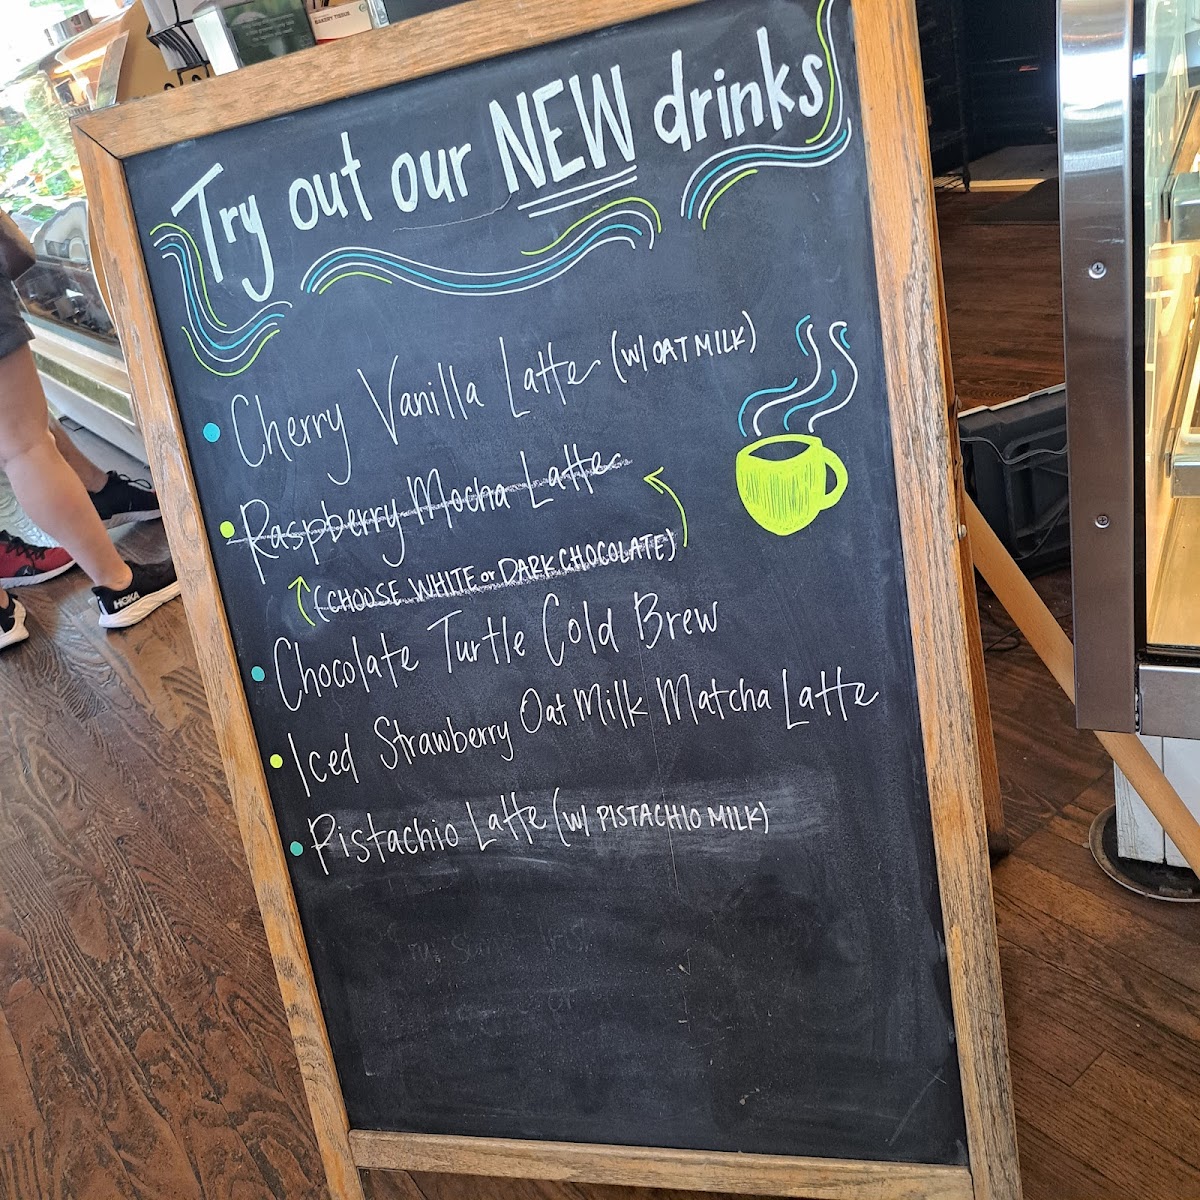 BAKERY TISSUE
Try out our NEW drinks
Cherry Vanilla Latte (W/ OAT MILK)
Raspberry Mocha Latte
(CHOOSE WHITE or DARK CHOCOLATE)
Chocolate Turtle Cold Brew
Iced Strawberry Oat Milk Matcha Latte
Pistachio Latte (W/ PISTACHIO MILK)
HOKA